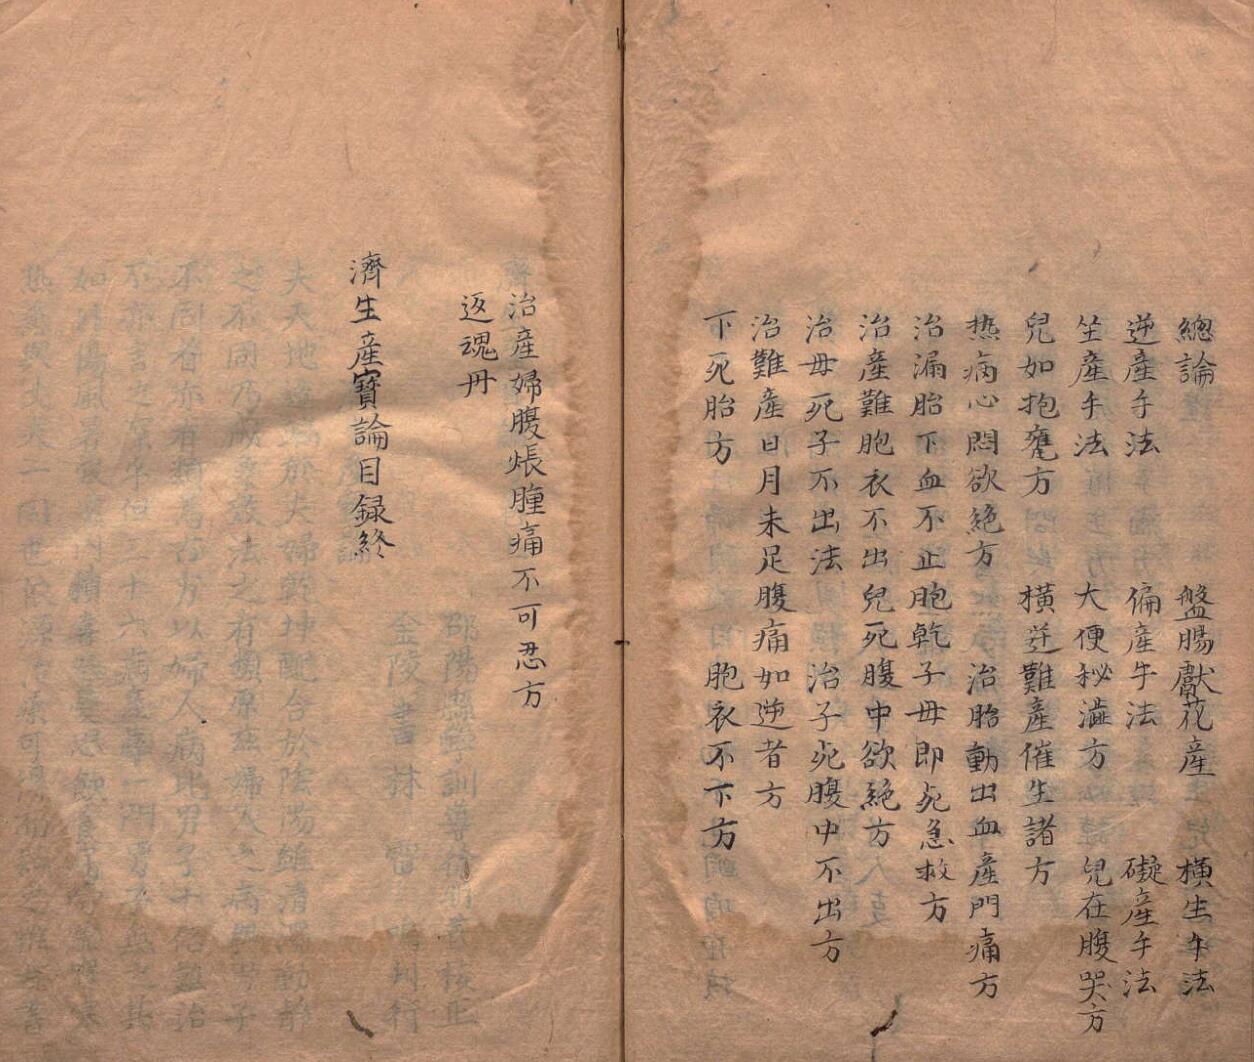 總論　盤腸獻花產　橫生手法
逆產手法　偏產手法　礙產手法
坐產手法　大便秘澁方　兒在腹哭方
兒如抱甕方　橫逆難產催生諸方
热病心悶欲絕方　治胎動出血產門痛方
治漏胎下血不止胞乾子母即死急救方
治產難胞衣不出兒死腹中欲絕方
治母死子不出法　治子死腹中不出方
治難產日月未足腹痛如逆者方
下死胎方　胞衣不下方
治產婦腹煺腫痛不可忍方
返魂丹
濟生產寶論目録終